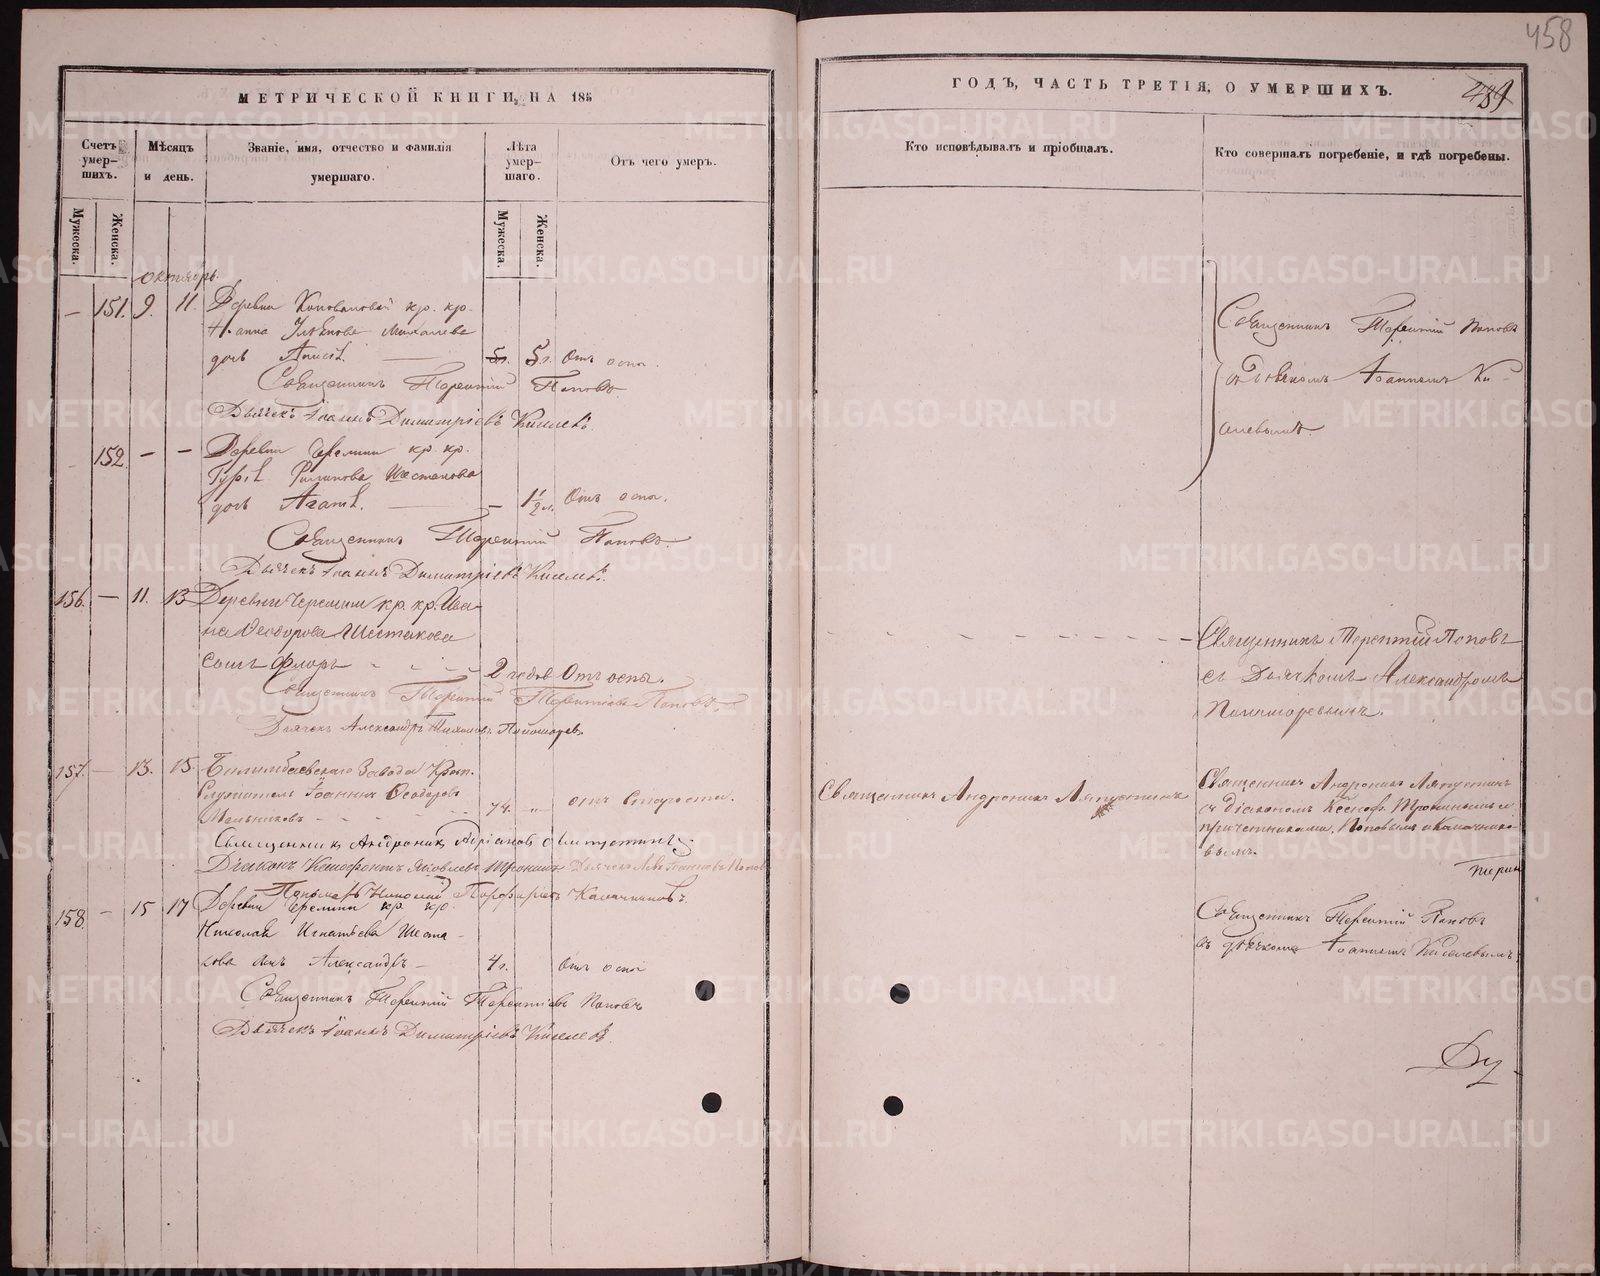 458
МЕТРИЧЕСКОЙ КНИГИ, НА 185
ГОДЪ, ЧАСТЬ ТРЕТІЯ, О УМЕРШИХЪ.
Счетъ умер-шихъ.
Мѣсяцъ и день.
Званіе, имя, отчество и фамилія умершаго.
Лѣта умер-шаго.
Отъ чего умеръ.
Кто исповѣдывалъ и пріобщалъ.
Кто совершалъ погребеніе, и гдѣ погребены.
Мужеска.
Женска.
Мужеска.
Женска.
октябрь.
— 151. 9 11. Деревни Коноваловой кр. кр.
дочь 5 л. Отъ оспы.
Священникъ Терентій Поповъ
Дьячекъ Іоаннъ Димитріевъ Киселевъ.
Священникъ Терентій Поповъ
съ дьячкомъ Іоанномъ Ки-
селевымъ.
152. — — Деревни Черемши кр. кр.
Филипова Шестакова
дочь Агаѳія. — 1 1/2 л. Отъ оспы.
Священникъ Терентій Поповъ.
Дьячекъ Іоаннъ Димитріевъ Киселевъ.
156. — 11. 13 Деревни Черемши кр. кр. Ива-
на Ѳеодорова Шестакова
сынъ Флоръ 2 годов Отъ оспы.
Священникъ Терентій Терентіевъ Поповъ.
Дьячекъ Александръ Пономаревъ
Священникъ Терентій Поповъ
съ Дьячкомъ Александромъ
Пономаревымъ.
157. — 13. 15. Билимбаевскаго Завода
Служитель Іоаннъ Ѳеодоровъ
Мельниковъ 74. „ отъ старости.
Священникъ Андроникъ Адріановъ Ляпустинъ
Діаконъ Ксенофонтъ Яковлевъ Тронинъ Дьячекъ Левъ Іоанновъ Поповъ
Пономарь Николай Порфирьевъ Калачниковъ.
Священникъ Андроникъ Ляпустинъ
Священникъ Андроникъ Ляпустинъ
съ Діакономъ Ксеноф. Тронинымъ и
причетниками, Поповымъ и Калачнико-
вымъ.
158. — 15 17 Деревни Черемши кр. кр.
Николая Игнатьева Шеста-
кова сынъ Александръ — 4 г. Отъ оспы
Священникъ Терентій Терентіевъ Поповъ
Дьячекъ Іоаннъ Димитріевъ Киселевъ.
Священникъ Терентій Поповъ
съ дьячкомъ Іоанномъ Киселевымъ.
METRIKI.GASO-URAL.RU